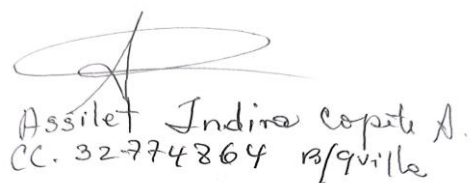 Assilet Indira Copete A.
CC. 32-774864 B/quilla